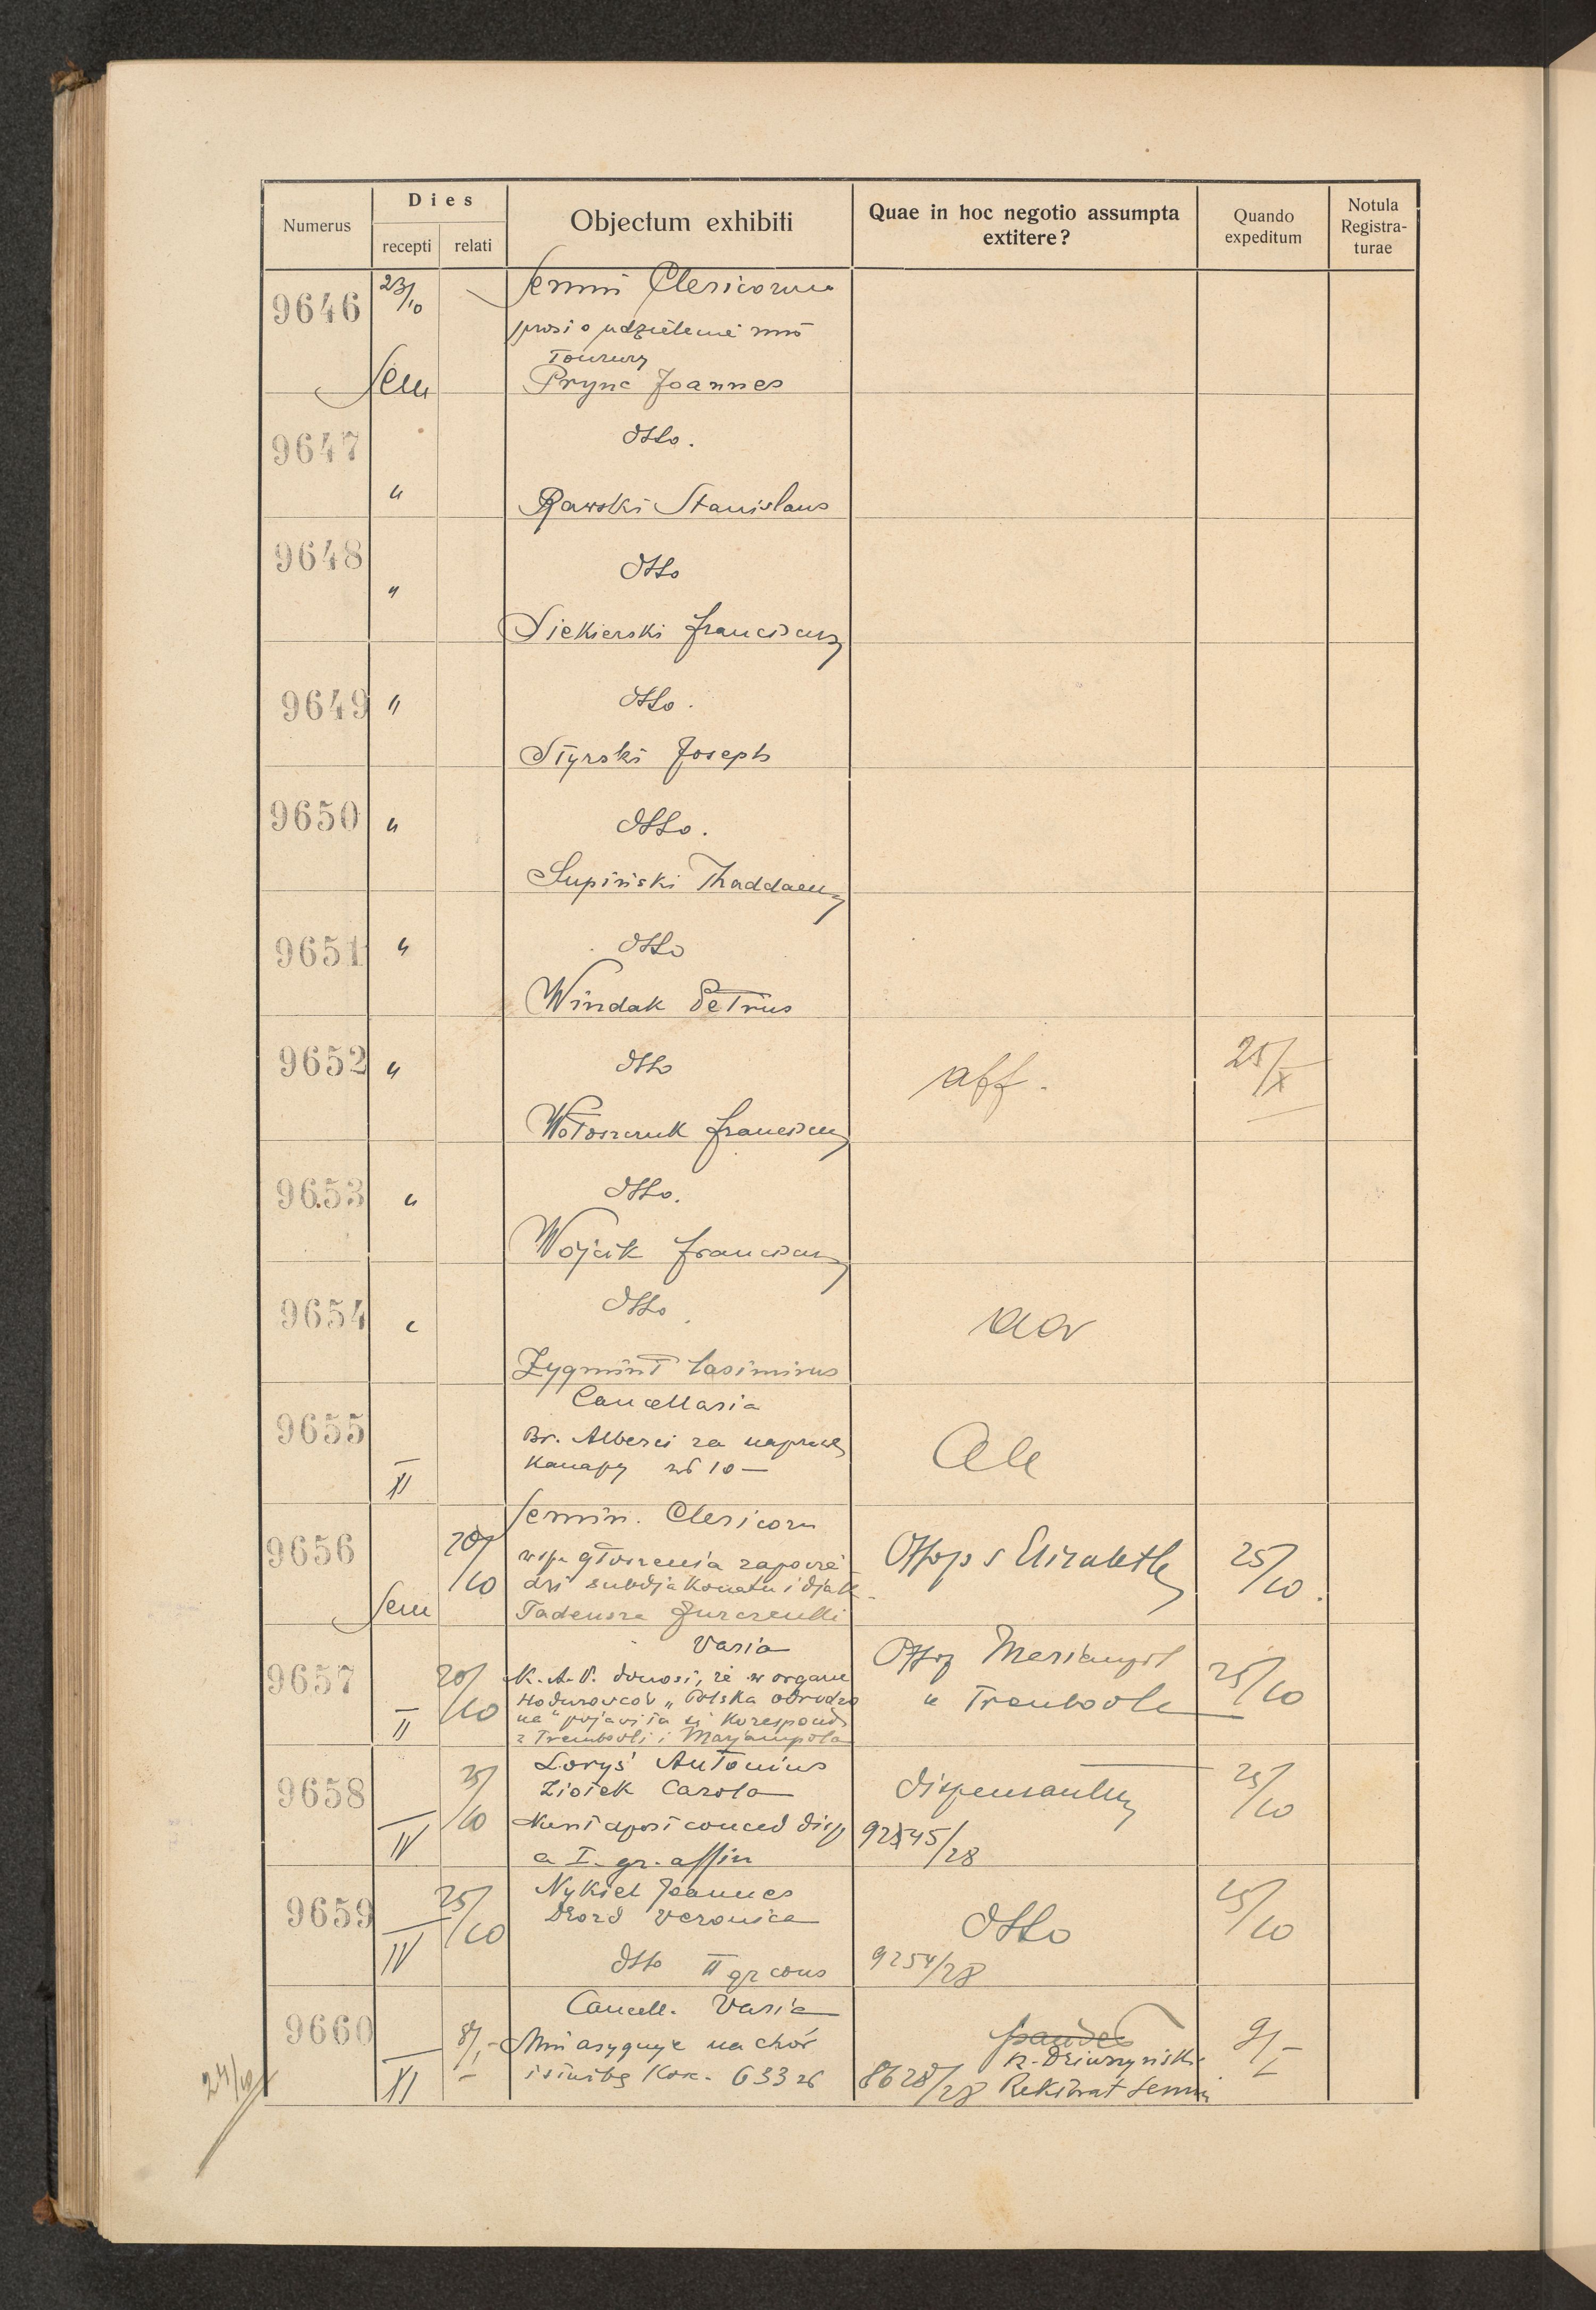 Numerus
Dies
recepti
relati
Objectum exhibiti
Quae in hoc negotio assumpta
extitere?
Quando
expeditum
Notula
Registra-
turae
9646
23/10
Semin Clericorum
prosi o udzielenie
Tonsury
Sem
Prync Joannes
9647
dtto.
"
Rawski Stanislaus
9648
dtto
"
Siekierski Franciscus
9649
"
dtto.
Styrski Joseph
9650
"
dtto.
Supiński Thaddaeus
9651
"
dtto
Windak Petrus
9652
"
dtto
aff.
25/X
Wołoszczuk Franciscus
9653
"
dtto.
Wójcik Franciscus
9654
dtto
Zygmunt Casimirus
9655
XI
Cancellaria
Br. Alberci za naprawę
Kanapy zł 10 —
9656
20/10
Sem
Semin. Clericoru
wsp. głoszenia zapowie
dzi subdjakonatu i djak
Tadeusza
S Elizabeth
25/10.
9657
II
20/10
Varia
K. A. P. donosi, że w organie
Hodurowców „Polska odrodzo
na" pojawiła się korespond
z Trembowli i Marjampola
Mariampol
" Trembowla
25/10
9658
IV
25/10
Loryś Antonius
Ziołek Carola
Nunt apost conced disp
a I. gr. affin
dispensantur
45/28
25/10
9659
IV
25/10
Nykiel Joannes
Drozd Veronica
dtto II gr cons
dtto
9254/28
25/10
9660
XI
8/I
Cancell. Varia
Min asygnuje na chór
i służbę Kośc. 633 26
8628/28
Rektorat Semin
9/I
24/10